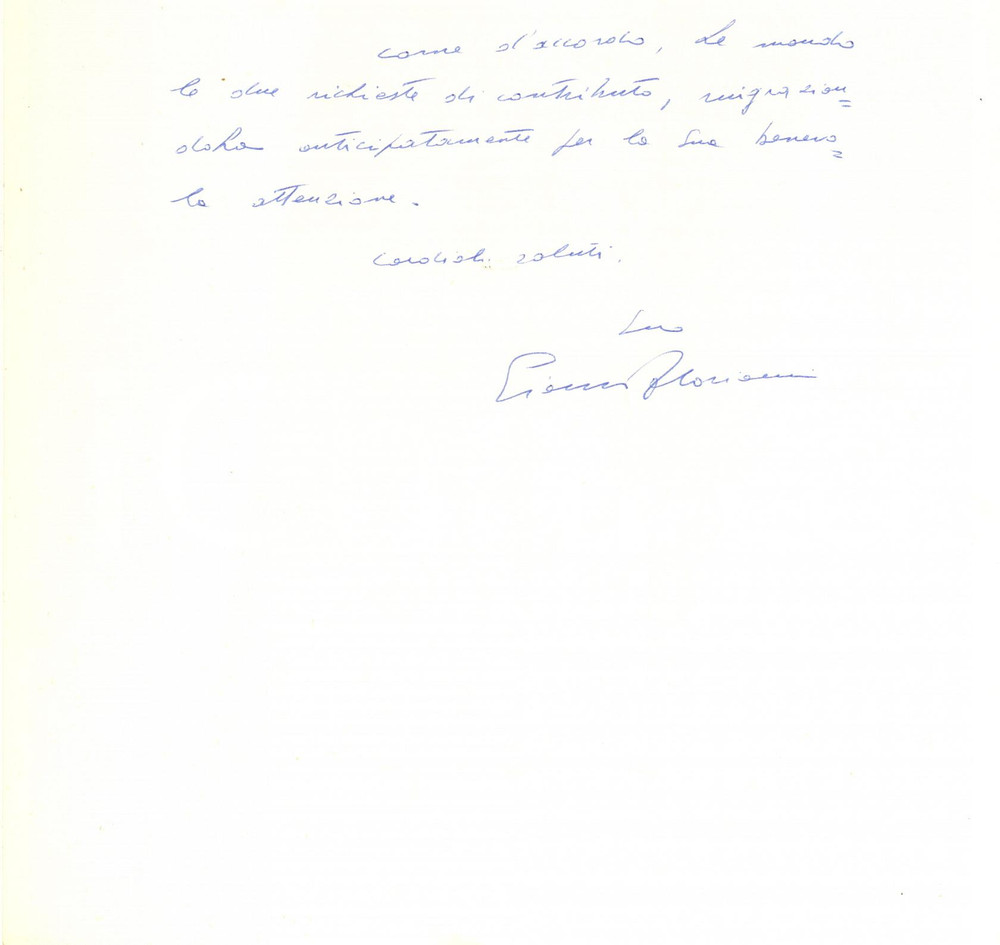 come d'accordo, Le mando
le due richieste di contributo, ringrazian=
dola anticipatamente per la Sua benevo=
la attenzione.
cordiali saluti.
Suo
Gianni Floriani